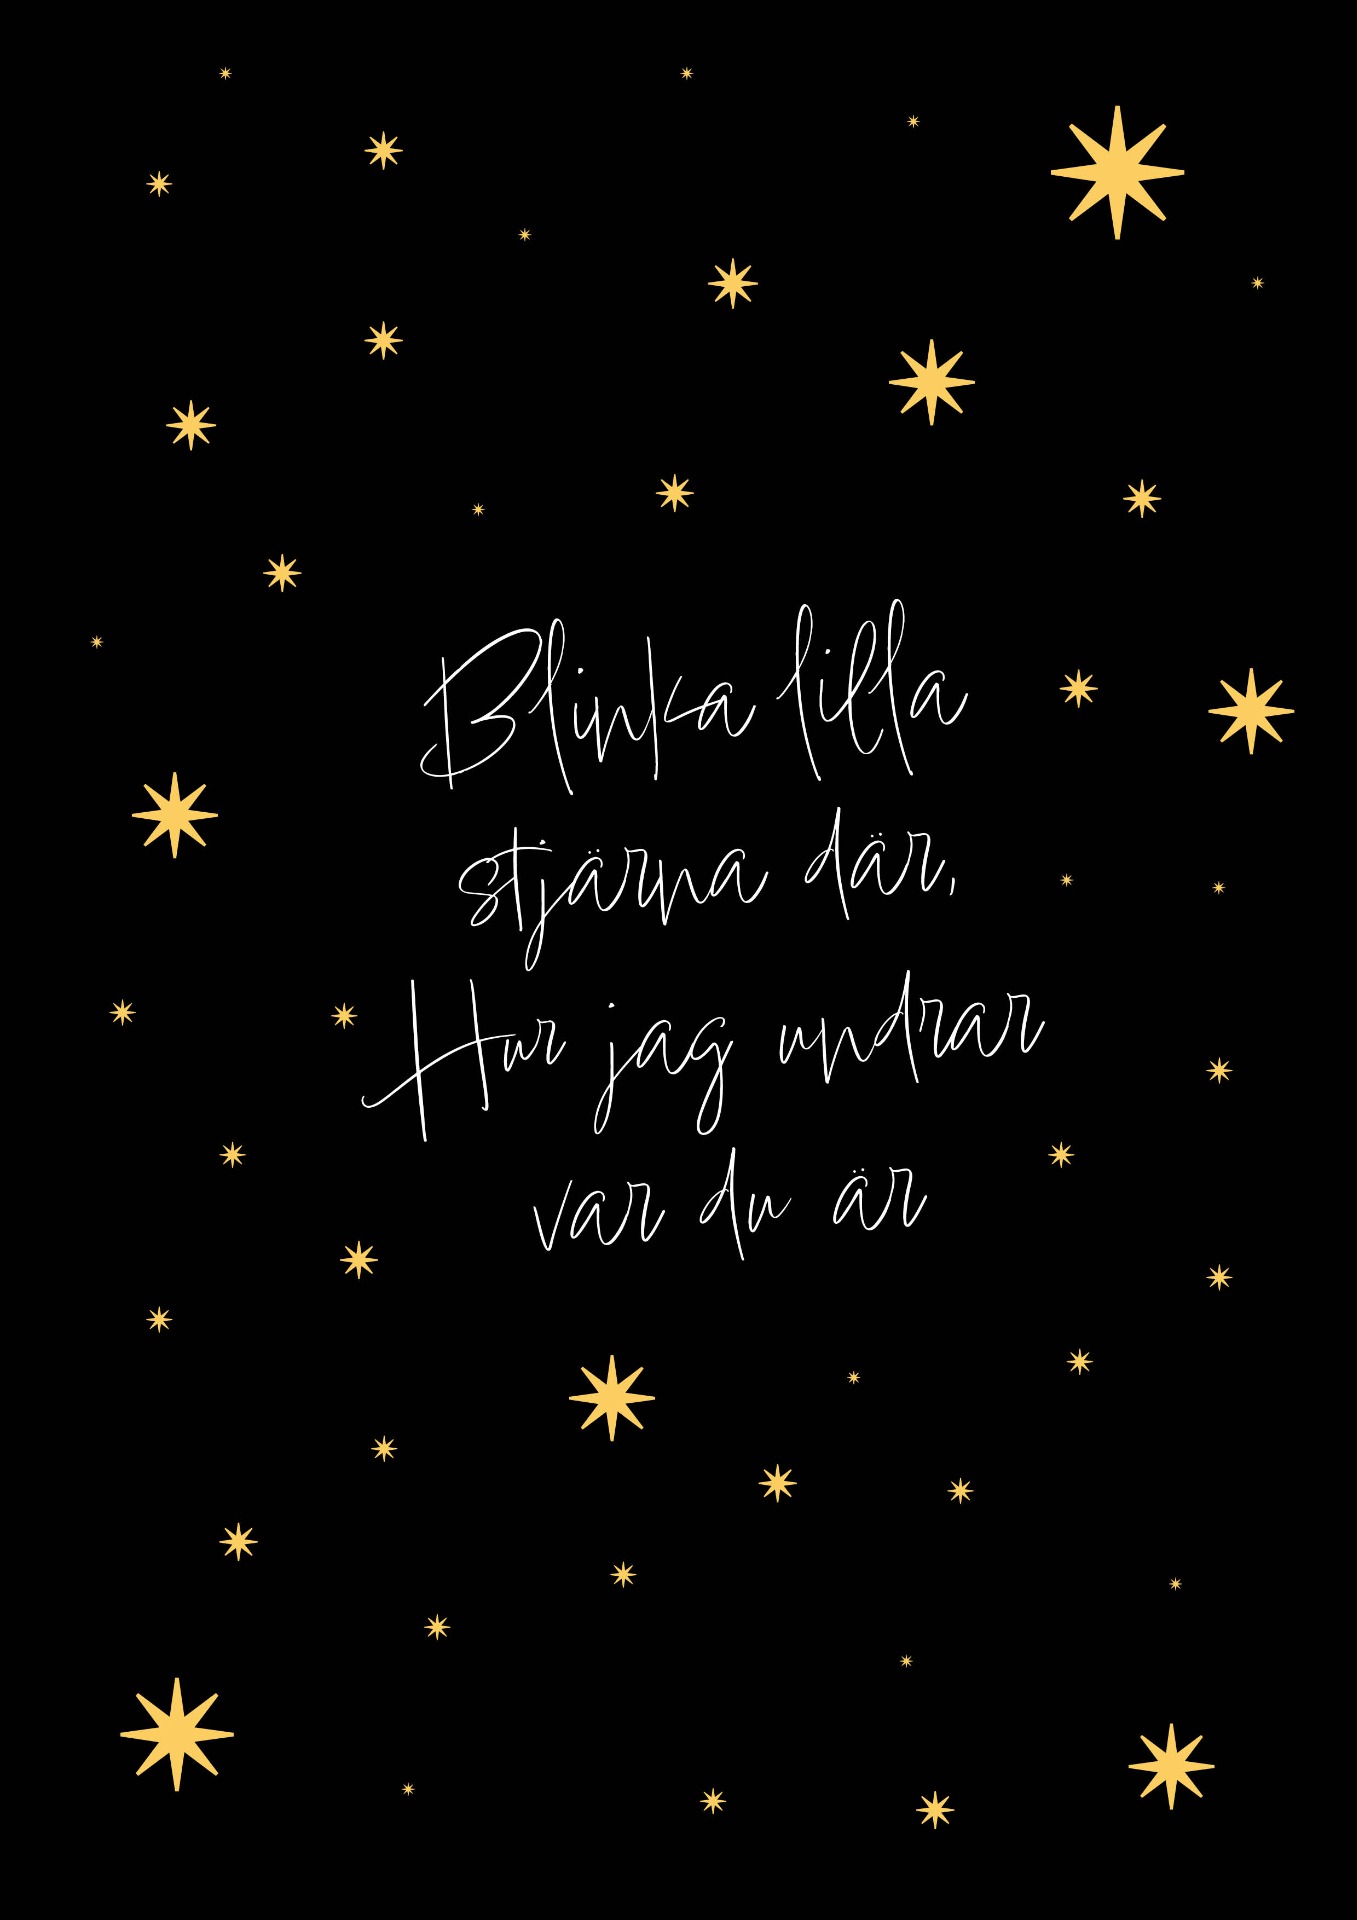 Blinka lilla
stjärna där,
Hur jag undrar
var du är